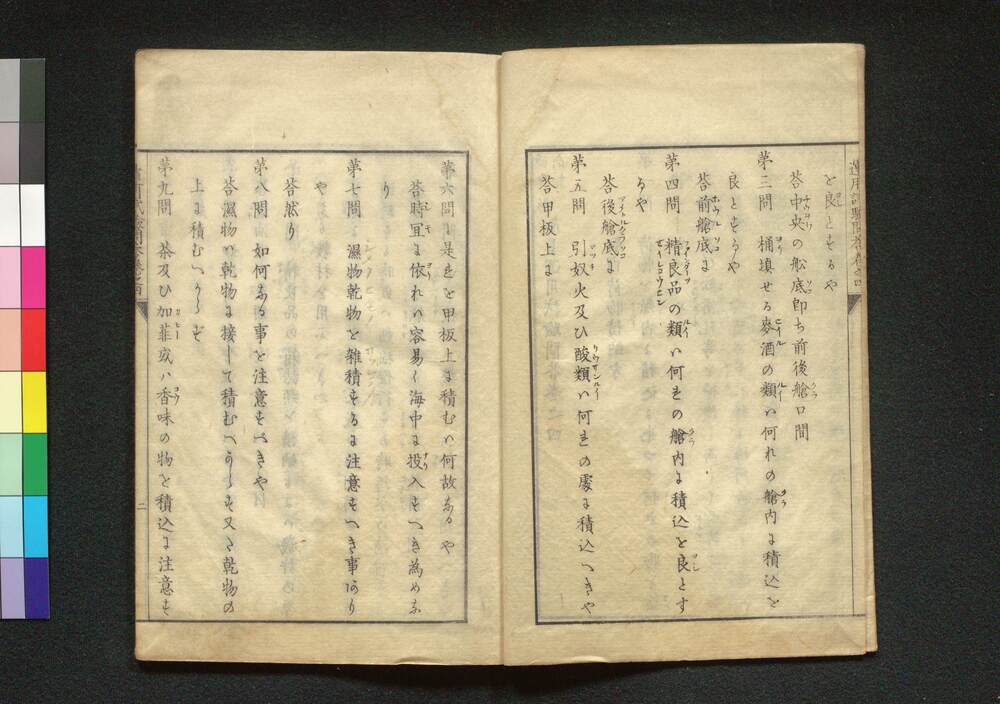 と良とするや
答中央の舩底即ち前後艙口間
第三問　桶填せる麥酒の類ハ何れの艙内に積込を
良とするや
答前艙底に
第四問　精良品の類ハ何れの艙内に積込を良とす
るや
答後艙底に
第五問　引奴火及ひ酸類ハ何れの處に積込へきや
答甲板上に
第六問　是を甲板上に積むハ何故なるや
答時宜に依れハ容易く海中に投入すへき為めな
り
第七問　濕物乾物を雑積するに注意すへき事あり
や
答然り
第八問　如何なる事を注意すへきや
答濕物ハ乾物に接して積むへからす又乾物の
上に積むへからす
第九問　茶及ひ加菲或ハ香味の物を積込に注意す
二